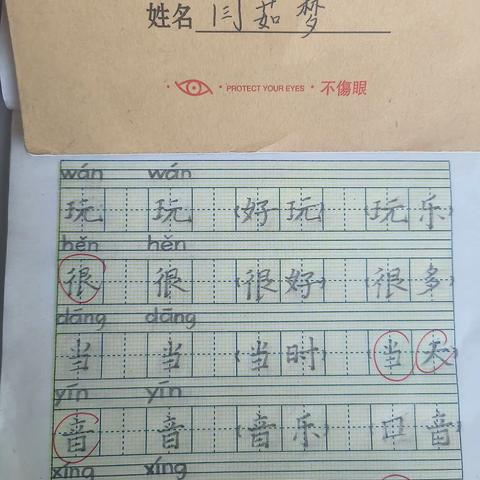 姓名 闫茹梦
PROTECT YOUR EYES · 不傷眼
wán wán
玩 玩 (好玩) (玩乐)
hěn hěn
很 很 (很好) (很多)
dāng dāng
当 当 (当时) (当天)
yīn yīn
音 音 (音乐) (口音)
xíng xíng